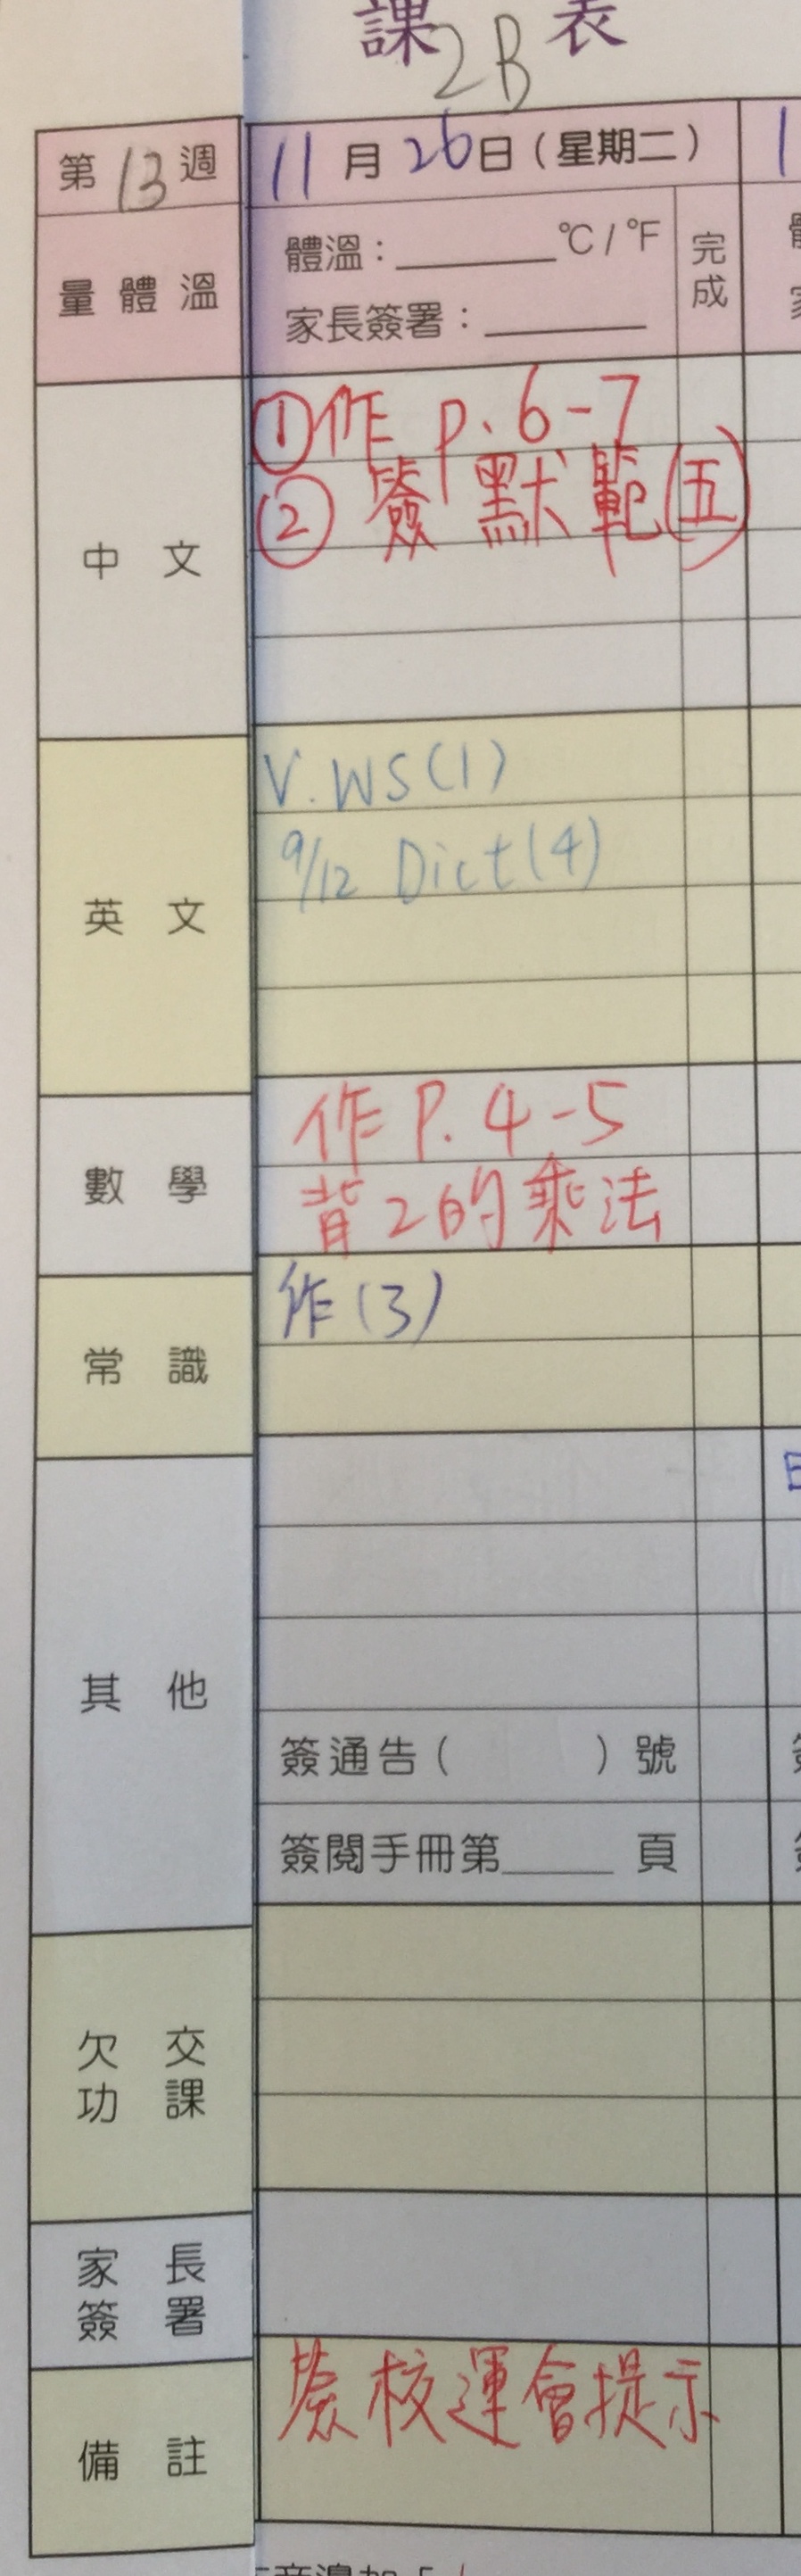 課 表
2B
第 13 週
11 月 26 日（星期二）
量 體 溫
體溫：______ ℃ / ℉
家長簽署：______
完成
中 文
①作 p. 6-7
② 簽 默 範 (五)
英 文
V. WS (1)
9/12 Dict (4)
數 學
作 P. 4-5
背 2 的 乘 法
常 識
作 (3)
其 他
簽通告（ ）號
簽閱手冊第____ 頁
欠 交
功 課
家 長
簽 署
備 註
簽 校 運 會 提 示